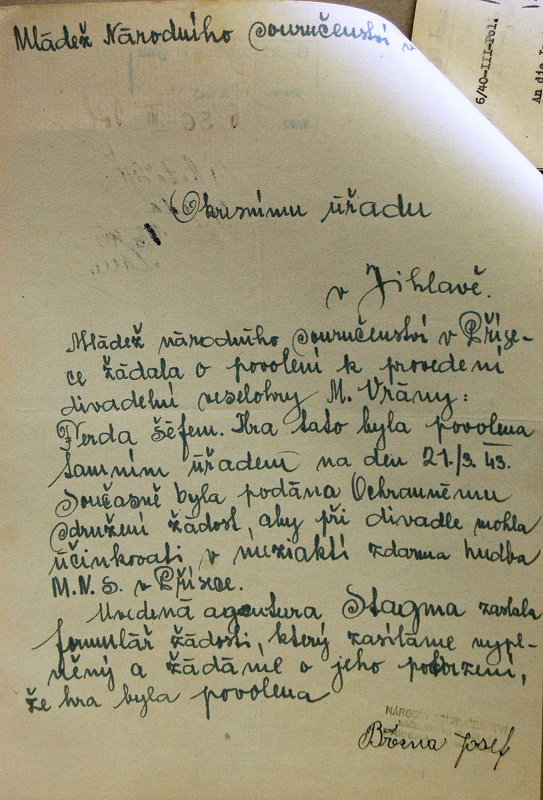 Mládež Národního Souručenství v
6/40-III-Pol.
An die
Okresnímu úřadu
v Jihlavě.
Mládež národního souručenství v Příse-
ce žádala o povolení k provedení
divadelní veselohry M. Vrány:
Ferda šéfem. Hra tato byla povolena
tamním úřadem na den 21./3. 43.
Současně byla podána Ochrannému
sdružení žádost, aby při divadle mohla
účinkovati v meziaktí zdarma hudba
M.N.S. v Přísece.
Uvedená agentura Stagma zaslala
formulář žádosti, který zasíláme vypl-
něný a žádáme o jeho potvrzení,
že hra byla povolena
NÁRODNÍ SOURUČENSTVÍ
Březina Josef